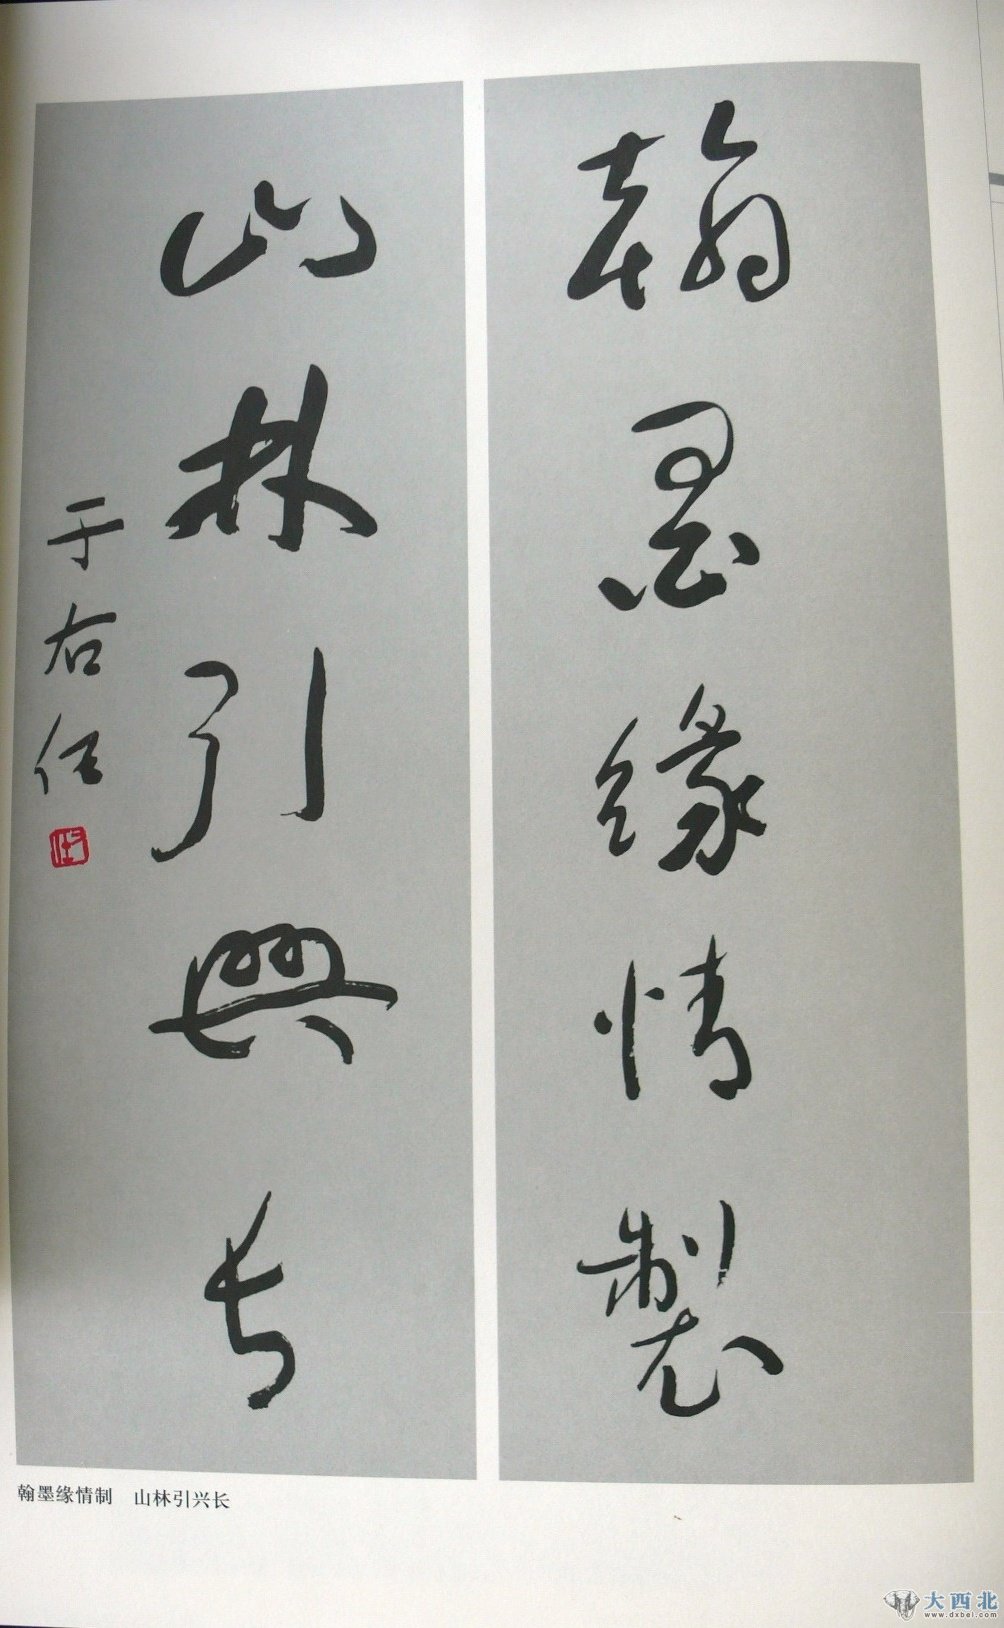 翰墨缘情製
山林引興长
于右任
翰墨缘情制 山林引兴长
大西北
www.dxbei.com